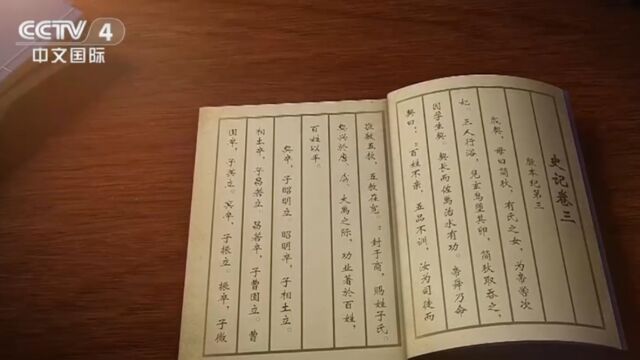 CCTV 4
中文国际
史记卷三
殷本纪第三
殷契，母曰简狄，有氏之女，为帝喾次
妃。三人行浴，见玄鸟堕其卵，简狄取吞之，
因孕生契。契长而佐禹治水有功。帝舜乃命
契曰：：百姓不亲，五品不训，汝为司徒而
敬敷五教，五教在宽。：封于商，赐姓子氏。
契兴於唐、虞、大禹之际，功业著於百姓，
百姓以平。
契卒，子昭明立。昭明卒，子相土立。
相土卒，子昌若立。昌若卒，子曹圉立。曹
圉卒，子冥立。冥卒，子振立。振卒，子微